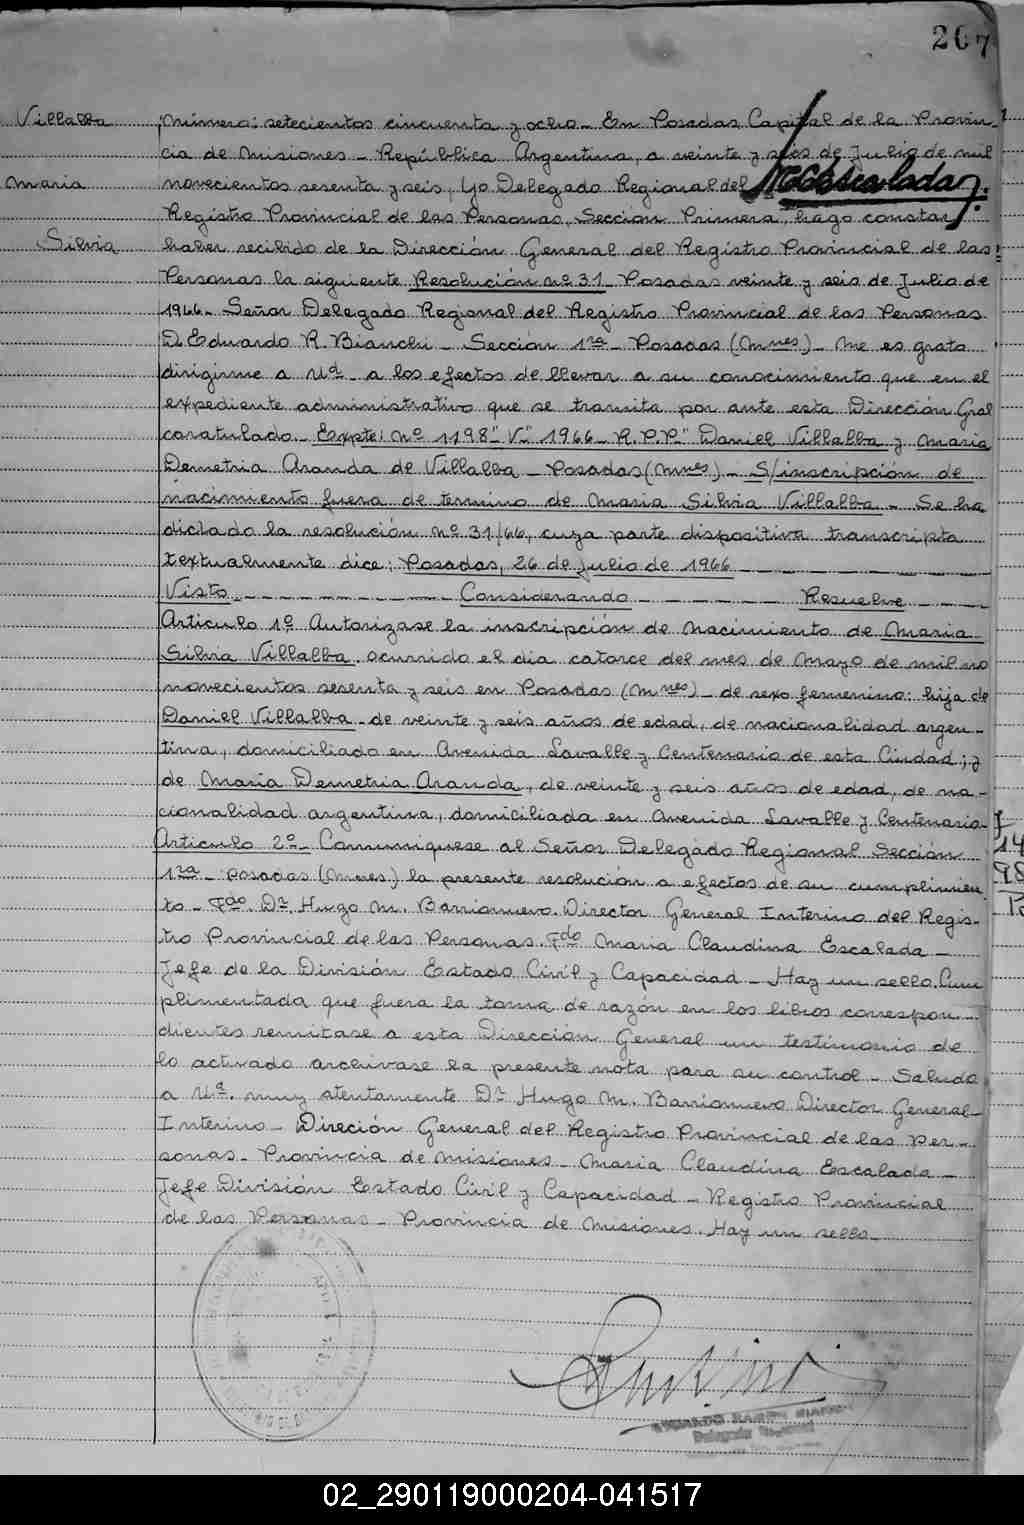 207
Villalba
Maria
Silvia
Número: setecientos cincuenta y ocho - En Posadas, Capital de la Provin-
cia de Misiones - República Argentina, a veinte y seis de Julio de mil
novecientos sesenta y seis, Yo Delegado Regional del MCEscalada.
Registro Provincial de las Personas, Sección Primera, hago constar
haber recibido de la Dirección General del Registro Provincial de las
Personas la siguiente Resolución nº 31 - Posadas veinte y seis de Julio de
1966 - Señor Delegado Regional del Registro Provincial de las Personas
D. Eduardo R. Bianchi - Sección 1ra - Posadas (Mnes) - Me es grato
dirigirme a Ud - a los efectos de llevar a su conocimiento que en el
expediente administrativo que se tramita por ante esta Dirección Gral
caratulado - Expte: Nº 1198" V" 1966 - R.P.P." Daniel Villalba y Maria
Demetria Aranda de Villalba - Posadas (Mnes) - S/inscripción de
nacimiento fuera de termino de Maria Silvia Villalba - Se ha
dictado la resolución Nº 31/66, cuya parte dispositiva transcripta
textualmente dice: Posadas, 26 de Julio de 1966
Visto - Considerando - Resuelve
Articulo 1º Autorizase la inscripción de nacimiento de Maria
Silvia Villalba. ocurrido el dia catorce del mes de Mayo de mil no
novecientos sesenta y seis en Posadas (Mnes) - de sexo femenino: hija de
Daniel Villalba - de veinte y seis años de edad, de nacionalidad argen-
tina, domiciliado en Avenida Lavalle y Centenario de esta Ciudad; y
de Maria Demetria Aranda, de veinte y seis años de edad, de na-
cionalidad argentina, domiciliada en Avenida Lavalle y Centenario
Articulo 2º - Comuniquese al Señor Delegado Regional Sección
1ra - Posadas (Mnes) la presente resolución a efectos de su cumplimien
to - Fdo. Dr. Hugo M. Barrionuevo. Director General Interino del Regis-
tro Provincial de las Personas. Fdo Maria Claudina Escalada -
Jefe de la División Estado Civil y Capacidad - Hay un sello. Cum
plimentada que fuera la toma de razón en los libros correspon -
dientes remitase a esta Dirección General un testimonio de
lo actuado archivase la presente nota para su control - Saludo
a Ud. muy atentamente Dr Hugo M. Barrionuevo Director General
Interino - Direción General del Registro Provincial de las Per-
sonas - Provincia de Misiones - Maria Claudina Escalada -
Jefe División Estado Civil y Capacidad - Registro Provincial
de las Personas - Provincia de Misiones. Hay un sello -
EDUARDO RAMON BIANCHI
Delegado Regional
02_290119000204-041517